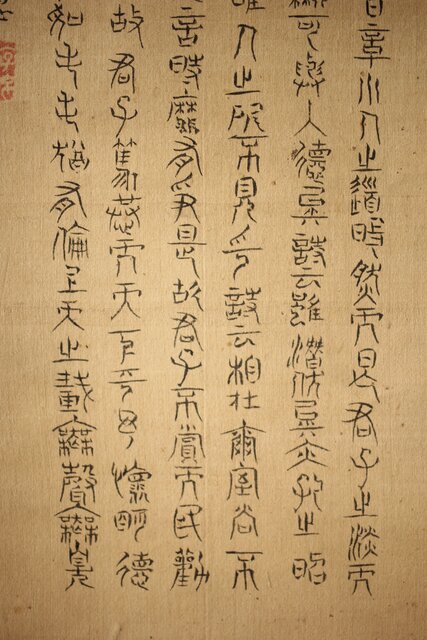 日章小人之道的然而日亡君子之淡而
顯可與入德矣詩云雖潛伏矣亦孔之昭
唯人之所不見乎詩云相在爾室尚不
言時靡有爭是故君子不賞而民勸
故君子篤恭而天下平予懷明德
如毛毛猶有倫上天之載無聲無臭